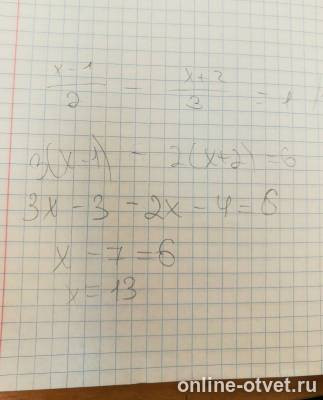 x-1/2 - x+2/3 = 1
3(x-1) - 2(x+2)=6
3x-3-2x-4=6
x-7=6
x=13
online-otvet.ru